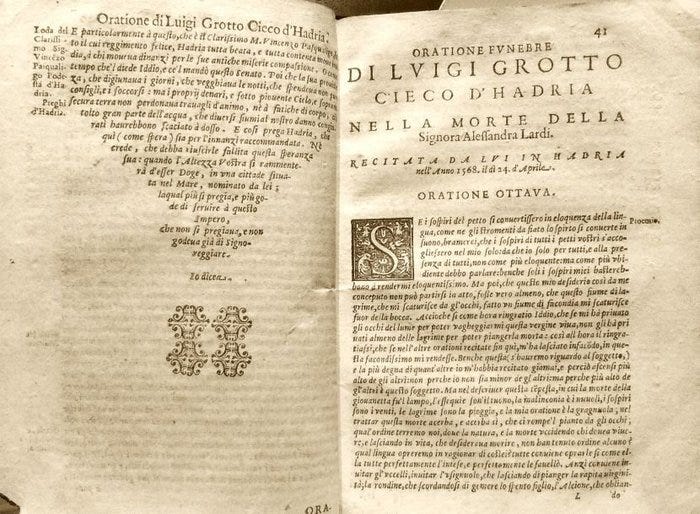 Oratione di Luigi Grotto Cieco d'Hadria.
Loda del
Clarissi-
mo Sig.
Vincẽzo
Pasquali-
go Pode-
stà d'Ha-
dria.
Preghi
d'Hadria.
E particolarmente à questo, che è il Clarissimo M. Vincenzo Pasqualigo, sot-
to il cui reggimento felice, Hadria tutta beata, e tutta contenta
dia, à chi mouea dianzi per le sue antiche miserie compassione. O
tempo che'l diede Iddio, e ce'l mandò questo Senato. Poi che la sua
za, che digiunaua i giorni, che vegghiaua le notti, che spendeua non
consigli, e i soccorsi: ma i proprij denari, e sotto piouente Cielo, e sopra
secura terra non perdonaua trauagli d'animo, nè à fatiche di corpo, ci
tolto gran parte dell'acqua, che diuersi fiumi al nostro danno congiu-
rati haurebbono scacciato à dosso. E così prega Hadria, che
qui (come spera) sia per l'innanzi raccommandata. Nè
crede, che debba riuscirle fallita questa speranza
sua: quando l'Altezza Vostra si rammente-
rà d'esser Doge, in vna cittade situa-
ta nel Mare, nominato da lei;
laqual più si pregia, e più go-
de di seruire à questo
Impero,
che non si pregiaua, e non
godeua già di Signo-
reggiare.
Io dicea.
ORA-
41
ORATIONE FVNEBRE
DI LVIGI GROTTO
CIECO D'HADRIA
NELLA MORTE DELLA
Signora Alessandra Lardi.
RECITATA DA LVI IN HADRIA
nell'Anno 1568. il dì 24. d'Aprile.
ORATIONE OTTAVA.
Proemio.
SE i sospiri del petto si conuertissero in eloquenza della lin-
gua, come ne gli stromenti da fiato lo spirto si conuerte in
suono, bramerei, che i sospiri di tutti i petti vostri s'acco-
gliestero nel mio solo: da che io solo per tutti, e alla pre-
senza di tutti, non come più eloquente: ma come più vbi-
diente debbo parlare: benche soli i sospiri miei basterebbo-
bono à rendermi eloquentissimo. Ma poi, che questo mio desiderio così da me
conceputo non può partirsi in atto, fosse vero almeno, che questo fiume di la-
grime, che mi scaturisce da gl'occhi, fatto vn fiume di facondia mi scaturisce
fuor della bocca. Accioche sì come hora ringratio Iddio, che se mi hà priuato
gli occhi del lume per poter vagheggiar mai questa vergine viua, non gli hà pri
uati almeno delle lagrime per poter piangerla morta: così all'hora il ringra-
tiassi, che se nell'altre orationi recitate fin quì, m'hà lasciato infacõdo, in que-
sta facondissimo mi rendesse. Benche questa (s'hauremo riguardo al soggetto,)
e la più degna di quant'altre io m'habbia recitato giamai, e perciò ascensi più
alto de gli altri: non perche io non sia minor de gl'altri: ma perche più alto de
gl'altri è questo soggetto. Ma nel descriuer questa tẽpesta, in cui la morte della
giouanetta fu'l lampo, l'essequie son il tuono, la malinconia è i nuuoli, i sospiri
sono i venti, le lagrime sono la pioggia, e la mia oratione è la gragnuola; nel
trattar questa morte acerba, e acerba sì, che ci rompe'l pianto da gli occhi;
qual'ordine terremo noi, doue la natura, e la morte vccidendo chi douea viue-
re, e lasciando in vita, che desideroua morire, non han tenuto ordine alcuno è
qual lingua opreremo in ragionar di costei: e tutte conuiene oprarle sì come el-
la tutte perfettamente l'intese, e perfettamente le fauellò. Anzi conuiene in-
uitar gl'vccelli, inuitar l'vsignuolo, che lasciando di piangere la rapita virgini-
tà; la rondine, che scordandosi di gemere lo spento figlio, l'Alcione, che oblian-
L do